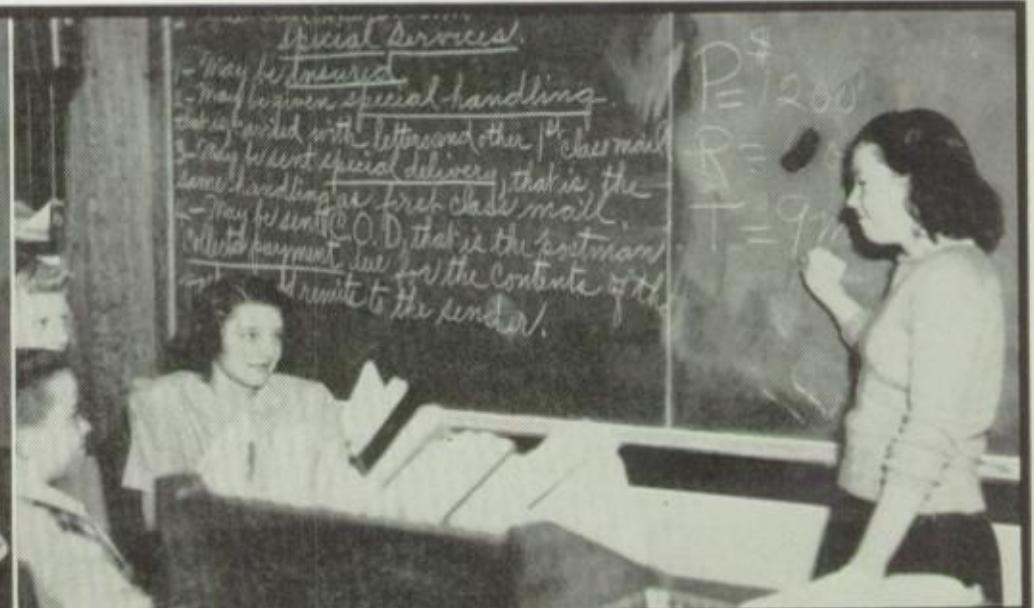 Special Services.
1- May be insured
2- May be given special handling.
that is carried with letters and other 1st class mail
3- May be sent special delivery, that is, the
same handling as first class mail.
4- May be sent C.O.D, that is the postman
collects payment due for the contents of the
remits to the sender.
P = $1200
R =
T = 9